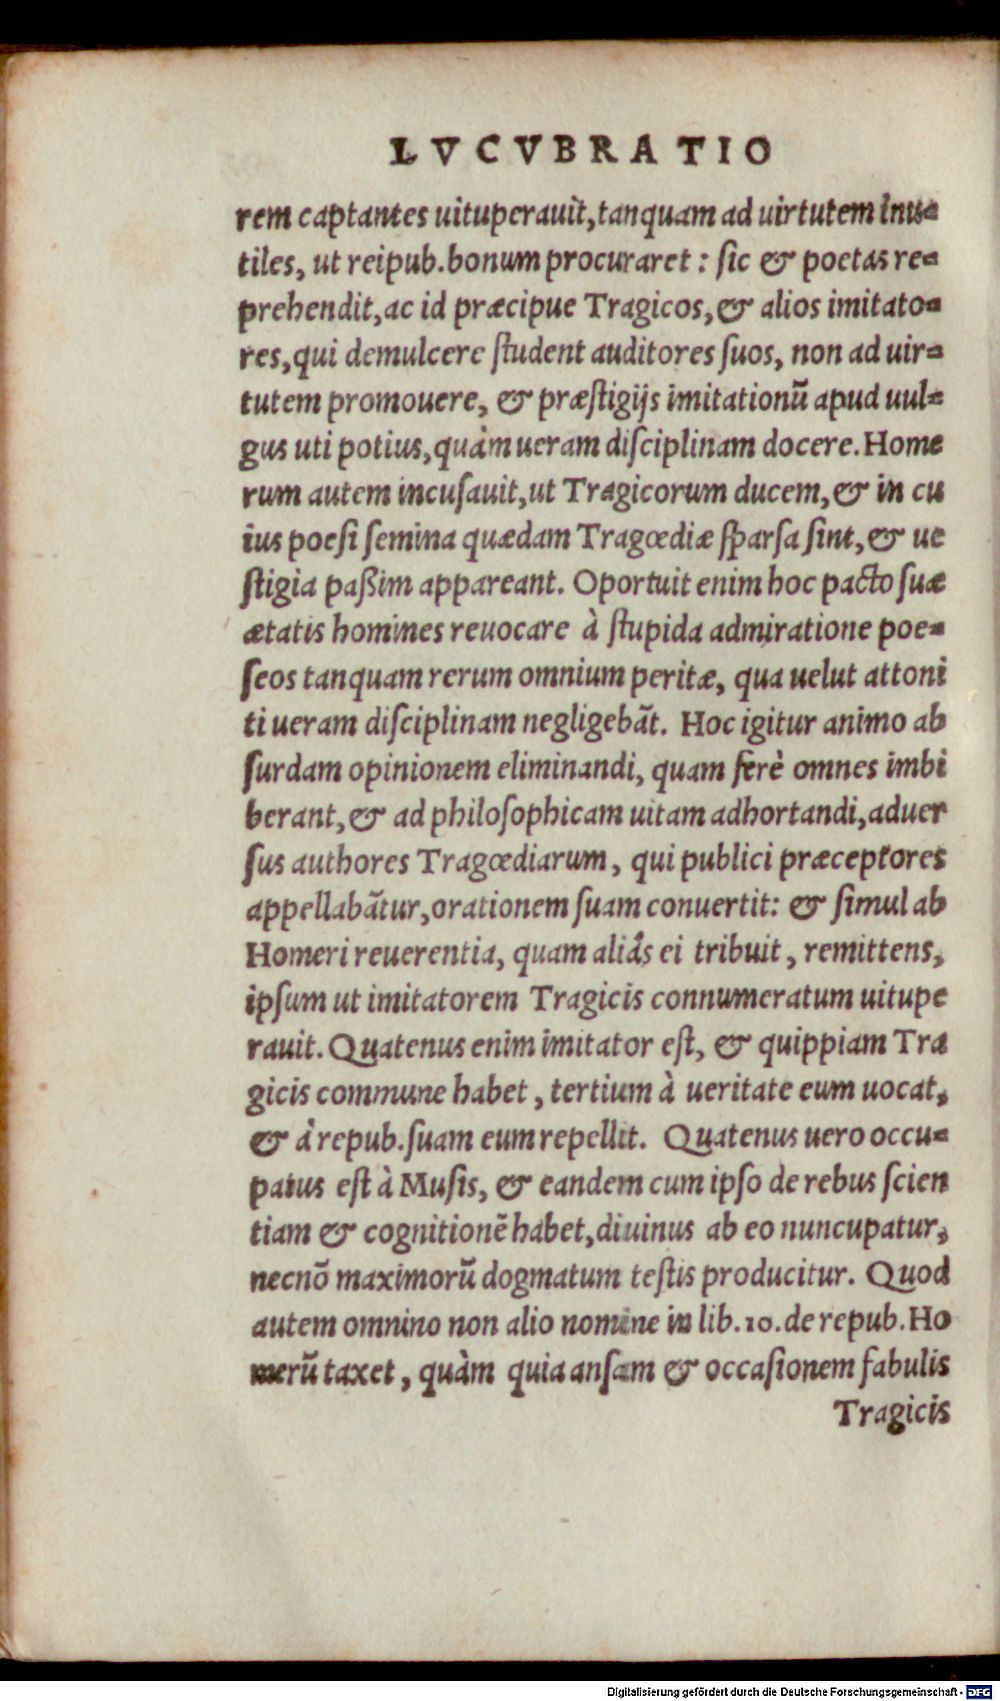 LVCVBRATIO
rem captantes uituperauit, tanquam ad uirtutem inu-
tiles, ut reipub. bonum procuraret: sic & poetas re-
prehendit, ac id præcipue Tragicos, & alios imitato-
res, qui demulcere ſtudent auditores ſuos, non ad uir-
tutem promouere, & præſtigijs imitationũ apud uul-
gus uti potius, quàm ueram diſciplinam docere. Home
rum autem incuſauit, ut Tragicorum ducem, & in cu
ius poeſi ſemina quædam Tragœdiæ ſparſa ſint, & ue
ſtigia paßim appareant. Oportuit enim hoc pacto ſuæ
ætatis homines reuocare à ſtupida admiratione poe-
ſeos tanquam rerum omnium peritæ, qua uelut attoni
ti ueram diſciplinam negligebãt. Hoc igitur animo ab
ſurdam opinionem eliminandi, quam ferè omnes imbi
berant, & ad philoſophicam uitam adhortandi, aduer
ſus authores Tragœdiarum, qui publici præceptores
appellabãtur, orationem ſuam conuertit: & ſimul ab
Homeri reuerentia, quam aliâs ei tribuit, remittens,
ipſum ut imitatorem Tragicis connumeratum uitupe
rauit. Quatenus enim imitator eſt, & quippiam Tra
gicis commune habet, tertium à ueritate eum uocat,
& à repub. ſuam eum repellit. Quatenus uero occu-
patus eſt à Muſis, & eandem cum ipſo de rebus ſcien
tiam & cognitionẽ habet, diuinus ab eo nuncupatur,
necnõ maximorũ dogmatum teſtis producitur. Quod
autem omnino non alio nomine in lib. 10. de repub. Ho
merũ taxet, quàm quia anſam & occaſionem fabulis
Tragicis
Digitalisierung gefördert durch die Deutsche Forschungsgemeinschaft - DFG